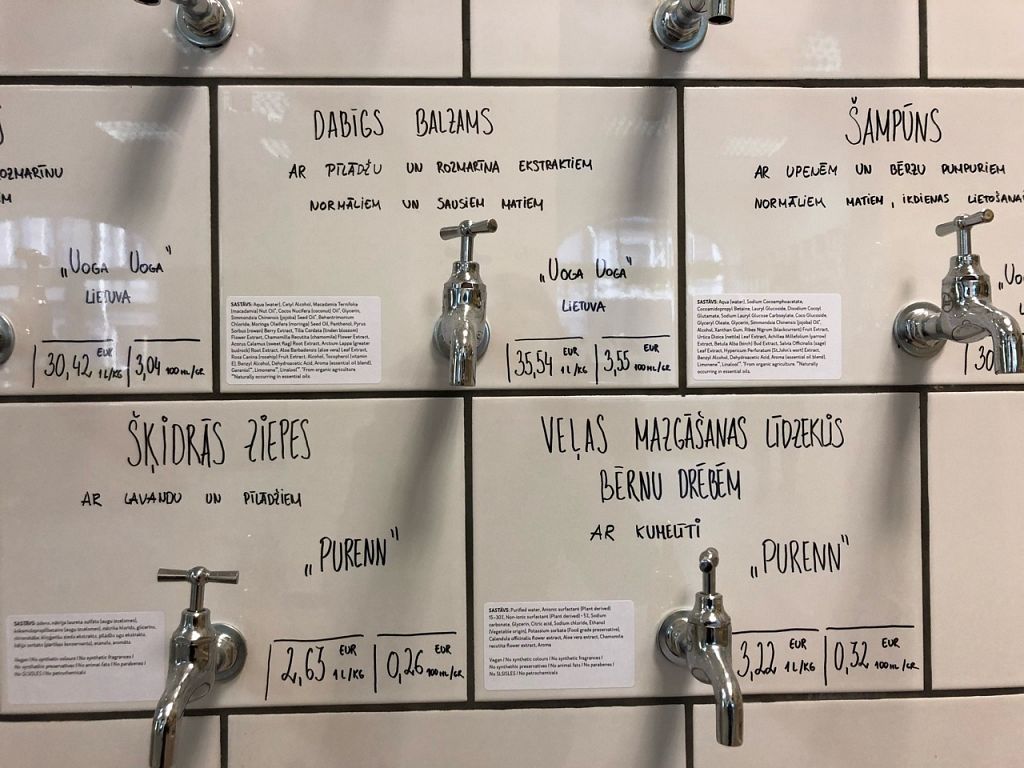 OZMARĪNU
„UOGA UOGA"
LIETUVA
30,42 EUR 1 L/KG
3,04 100 ML/GR
DABĪGS BALZAMS
AR PĪLĀDŽU UN ROZMARĪNA EKSTRAKTIEM
NORMĀLIEM UN SAUSIEM MATIEM
„UOGA UOGA"
LIETUVA
SASTĀVS: Aqua (water), Cetyl Alcohol, Macadamia Ternifolia
(macadamia) Nut Oil*, Cocos Nucifera (coconut) Oil*, Glycerin,
Simmondsia Chinensis (jojoba) Seed Oil*, Behentrimonium
Chloride, Moringa Oleifera (moringa) Seed Oil, Panthenol, Pyrus
Sorbus (rowan) Berry Extract, Tilia Cordata (linden blossom)
Flower Extract, Chamomilla Recutita (chamomile) Flower Extract,
Acorus Calamus (sweet flag) Root Extract, Arctium Lappa (greater
burdock) Root Extract, Aloe Barbadensis (aloe vera) Leaf Extract,
Rosa Canina (rosehip) Fruit Extract, Alcohol, Tocopherol (vitamin
E), Benzyl Alcohol, Dehydroacetic Acid, Aroma (essential oil blend),
Geraniol**, Limonene**, Linalool**. *From organic agriculture
**Naturally occurring in essential oils.
35,54 EUR 1 L/KG
3,55 EUR 100 ML/GR
ŠAMPŪNS
AR UPENĒM UN BĒRZU PUMPURIEM
NORMĀLIEM MATIEM, IKDIENAS LIETOŠANAI
„UO
L
SASTĀVS: Aqua (water), Sodium Cocoamphoacetate,
Cocamidopropyl Betaine, Lauryl Glucoside, Disodium Cocoyl
Glutamate, Sodium Lauryl Glucose Carboxylate, Coco Glucoside,
Glyceryl Oleate, Glycerin, Simmondsia Chinensis (jojoba) Oil*,
Alcohol, Xanthan Gum, Ribes Nigrum (blackcurrant) Fruit Extract,
Urtica Dioica (nettle) Leaf Extract, Achillea Millefolium (yarrow)
Extract, Betula Alba (birch) Bud Extract, Salvia Officinalis (sage)
Leaf Extract, Hypericum Perforatum (St.John's wort) Extract,
Benzyl Alcohol, Dehydroacetic Acid, Aroma (essential oil blend),
Limonene**, Linalool**. *From organic agriculture **Naturally
occurring in essential oils.
30,
ŠĶIDRĀS ZIEPES
AR LAVANDU UN PĪLĀDŽIEM
„PURENN"
SASTĀVS:
Vegan / No synthetic colours / No synthetic fragrances /
No synthetic preservatives / No animal fats / No parabenes /
No SLS/SLES / No petrochemicals
2,63 EUR 1 L/KG
0,26 EUR 100 ML/GR
VEĻAS MAZGĀŠANAS LĪDZEKLIS
BĒRNU DRĒBĒM
AR KUMELĪTI
„PURENN"
SASTĀVS: Purified water, Anionic surfactant (Plant derived)
15-30%, Non-ionic surfactant (Plant derived) < 5%, Sodium
carbonate, Glycerin, Citric acid, Sodium chloride, Ethanol
(Vegetable origin), Potassium sorbate (Food grade preservative),
Calendula officinalis flower extract, Aloe vera extract, Chamomile
recutita flower extract, Aroma
Vegan / No synthetic colours / No synthetic fragrances /
No synthethis preservatives / No animal fats / No parabenes /
No SLS/SLES / No petrochemicals
3,22 EUR 1 L/KG
0,32 EUR 100 ML/GR